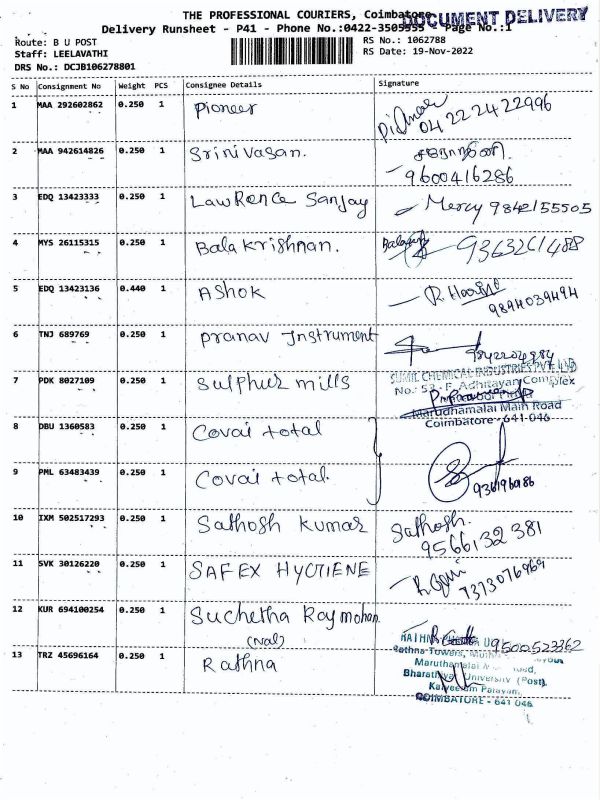 THE PROFESSIONAL COURIERS, Coimbatore
DOCUMENT DELIVERY
Delivery Runsheet - P41 - Phone No.:0422-3505955 - Page No.:1
Route: B U POST
RS No.: 1062788
Staff: LEELAVATHI
RS Date: 19-Nov-2022
DRS No.: DCJB106278801
S No Consignment No Weight PCS Consignee Details Signature
1 MAA 292602862 0.250 1 Pioneer
04222422996
2 MAA 942614826 0.250 1 Srinivasan. சரோஜினி.
9600416286
3 EDQ 13423333 0.250 1 Lawrence Sanjay Mercy 9842155505
4 MYS 26115315 0.250 1 Bala Krishnan. 9363261488
5 EDQ 13423136 0.440 1 Ashok
9894039494
6 TNJ 689769 0.250 1 Pranav Instrument
9842204984
7 PDK 8027109 0.250 1 Sulphur mills
SUMIL CHEMICAL INDUSTRIES PVT LTD
No.: 53 - F, Adhitayan Complex
Marudhamalai Main Road
Coimbatore - 641 046
8 DBU 1360583 0.250 1 Covai total
9 PML 63483439 0.250 1 Covai total.
10 IXM 502517293 0.250 1 Sathosh Kumar Sathosh.
9566132381
11 SVK 30126220 0.250 1 SAFEX HYGIENE
7373076969
12 KUR 694100254 0.250 1 Suchetha Raymohan
(Nal)
9500523362
13 TRZ 45696164 0.250 1 Rathna
Rathna Towers,
Maruthamalai
Bharathiyar University (Post),
Kalveeram Palayam,
COIMBATORE - 641 046